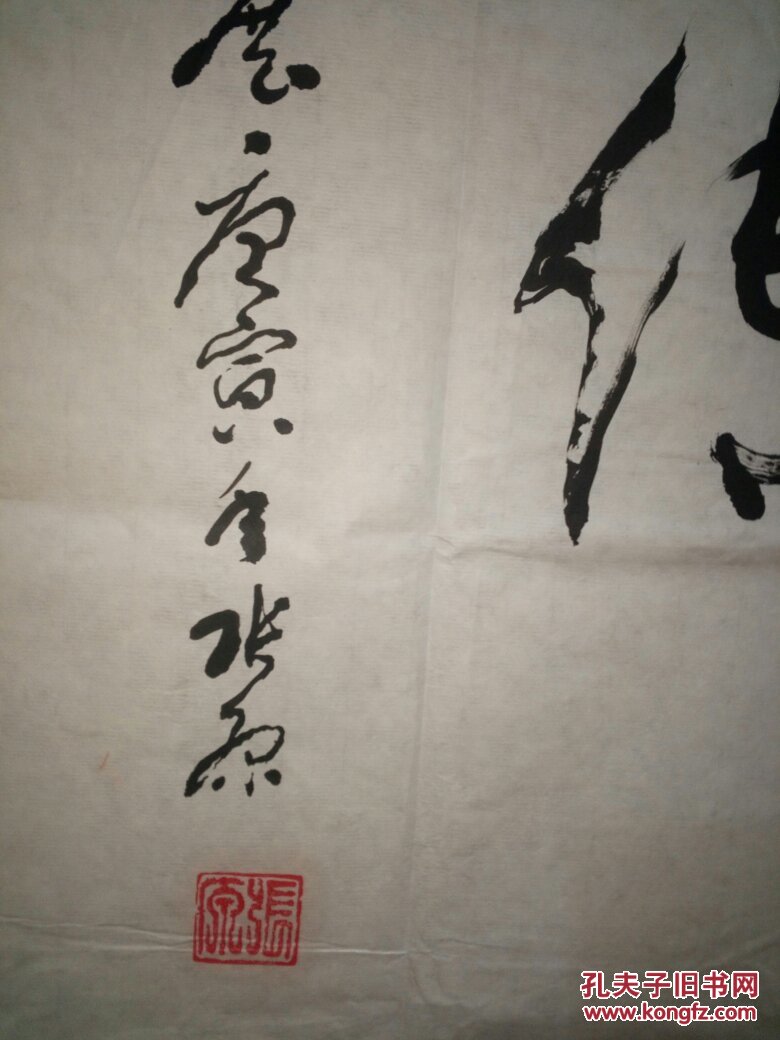 庚寅年张原
張原
孔夫子旧书网
www.kongfz.com